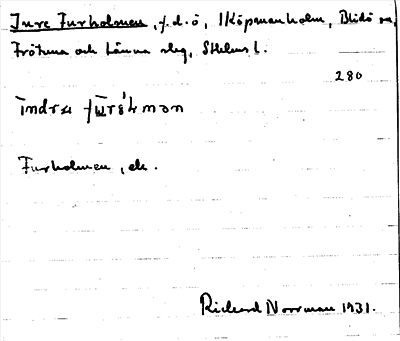 Inre Furholmen, f.d. ö, i Köpmanholm, Blidö sn,
Frötuna och Länna slg, Sthlms l.
280
Furholmen, ek.
Rickard Norrman 1931.